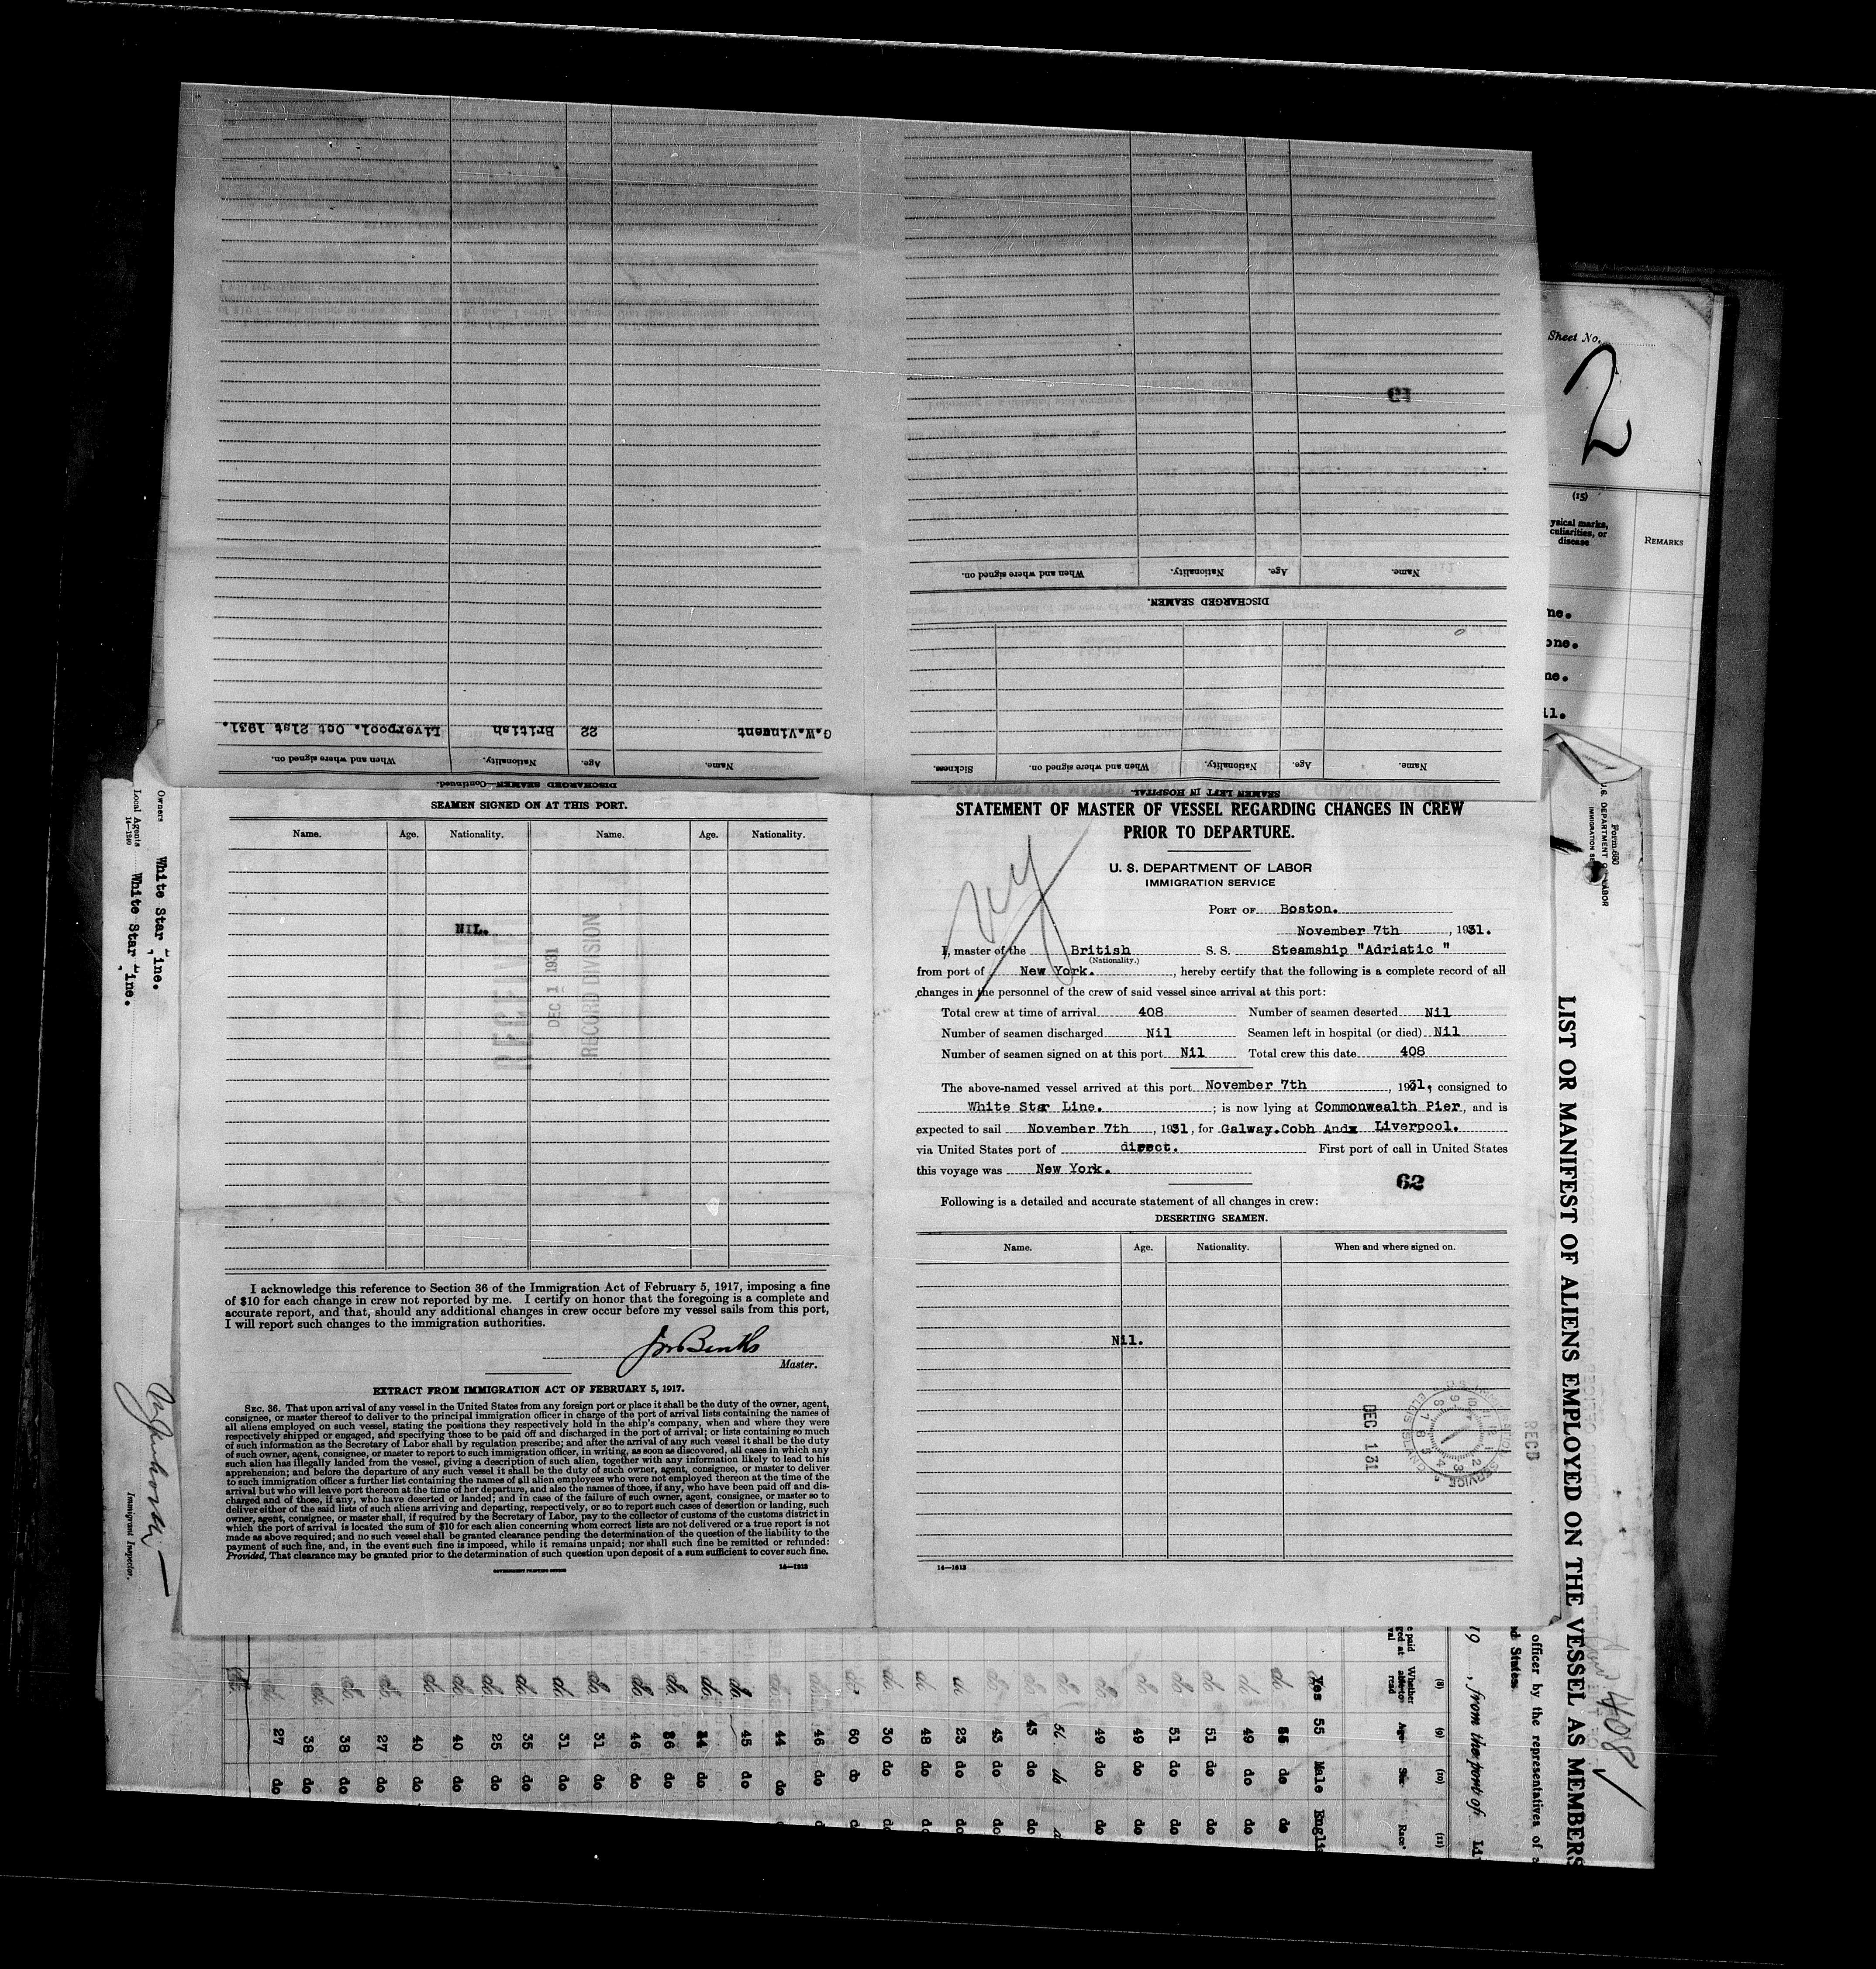 Sheet No.
2
(15)
ysical marks,
culiarities, or
disease
REMARKS
ne.
one.
ne.
il.
61
Name.
Age.
Nationality.
When and where signed on.
DISCHARGED SEAMEN.
Name.
Age.
Nationality.
When and where signed on.
Sickness.
SEAMEN LEFT IN HOSPITAL.
DISCHARGED SEAMEN—Continued.
Name.
Age.
Nationality.
When and where signed on.
G.W.Vincent 22 British Liverpool. Oct 21st 1931.
SEAMEN SIGNED ON AT THIS PORT.
Name. Age. Nationality. Name. Age. Nationality.
NIL.
DEC 1 1931
RECORD DIVISION
I acknowledge this reference to Section 36 of the Immigration Act of February 5, 1917, imposing a fine
of $10 for each change in crew not reported by me. I certify on honor that the foregoing is a complete and
accurate report, and that, should any additional changes in crew occur before my vessel sails from this port,
I will report such changes to the immigration authorities.
Master.
EXTRACT FROM IMMIGRATION ACT OF FEBRUARY 5, 1917.
SEC. 36. That upon arrival of any vessel in the United States from any foreign port or place it shall be the duty of the owner, agent,
consignee, or master thereof to deliver to the principal immigration officer in charge of the port of arrival lists containing the names of
all aliens employed on such vessel, stating the positions they respectively hold in the ship's company, when and where they were
respectively shipped or engaged, and specifying those to be paid off and discharged in the port of arrival; or lists containing so much
of such information as the Secretary of Labor shall by regulation prescribe; and after the arrival of any such vessel it shall be the duty
of such owner, agent, consignee, or master to report to such immigration officer, in writing, as soon as discovered, all cases in which any
such alien has illegally landed from the vessel, giving a description of such alien, together with any information likely to lead to his
apprehension; and before the departure of any such vessel it shall be the duty of such owner, agent, consignee, or master to deliver
to such immigration officer a further list containing the names of all alien employees who were not employed thereon at the time of the
arrival but who will leave port thereon at the time of her departure, and also the names of those, if any, who have been paid off and dis-
charged and of those, if any, who have deserted or landed; and in case of the failure of such owner, agent, consignee, or master so to
deliver either of the said lists of such aliens arriving and departing, respectively, or so to report such cases of desertion or landing, such
owner, agent, consignee, or master shall, if required by the Secretary of Labor, pay to the collector of customs of the customs district in
which the port of arrival is located the sum of $10 for each alien concerning whom correct lists are not delivered or a true report is not
made as above required; and no such vessel shall be granted clearance pending the determination of the question of the liability to the
payment of such fine, and, in the event such fine is imposed, while it remains unpaid; nor shall such fine be remitted or refunded:
Provided, That clearance may be granted prior to the determination of such question upon deposit of a sum sufficient to cover such fine.
GOVERNMENT PRINTING OFFICE
14—1213
STATEMENT OF MASTER OF VESSEL REGARDING CHANGES IN CREW
PRIOR TO DEPARTURE.
U. S. DEPARTMENT OF LABOR
IMMIGRATION SERVICE
PORT OF Boston.
November 7th, 1931.
I, master of the British S. S. Steamship "Adriatic "
(Nationality.)
from port of New York., hereby certify that the following is a complete record of all
changes in the personnel of the crew of said vessel since arrival at this port:
Total crew at time of arrival 408 Number of seamen deserted Nil
Number of seamen discharged Nil Seamen left in hospital (or died) Nil
Number of seamen signed on at this port Nil Total crew this date 408
The above-named vessel arrived at this port November 7th, 1931, consigned to
White Star Line. ; is now lying at Commonwealth Pier, and is
expected to sail November 7th, 1931, for Galway.Cobh Andx Liverpool.
via United States port of direct. First port of call in United States
this voyage was New York.
62
Following is a detailed and accurate statement of all changes in crew:
DESERTING SEAMEN.
Name. Age. Nationality. When and where signed on.
Nil.
DEC 1 31
RECD
14—1213
Owners White Star Line.
Local Agents White Star Line.
14—1240
Immigrant Inspector.
Form 680
U.S. DEPARTMENT OF LABOR
IMMIGRATION SE
LIST OR MANIFEST OF ALIENS EMPLOYED ON THE VESSEL AS MEMBERS
408
officer by the representatives of a
d States
19 , from the port of Li
(8) (9) (10) (11)
Whether able to read
Age
Sex
Race
Yes 55 Male Englis
do 55 do do
do 49 do do
do 51 do do
do 51 do do
do 49 do do
do 49 do do
54 do
do 43 do do
do 43 do do
23 do do
48 do do
do 30 do do
60 do
46 do
44 do
do 45 do
do 34 do
do 36 do
do 46 do
do 31 do
do 31 do
do 35 do
do 25 do
do 40 do
do 40 do
do 27 do
do 38 do
do 38 do
do 27 do